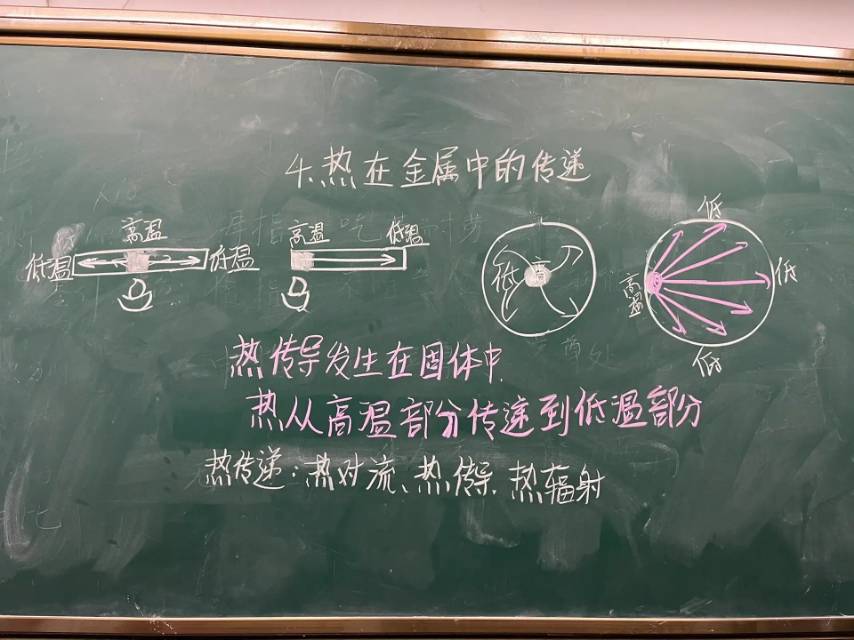 4.热在金属中的传递
高温
低温 低温
高温 低温
低 高
低
高温 低
低
热传导发生在固体中.
热从高温部分传递到低温部分
热传递:热对流、热传导、热辐射